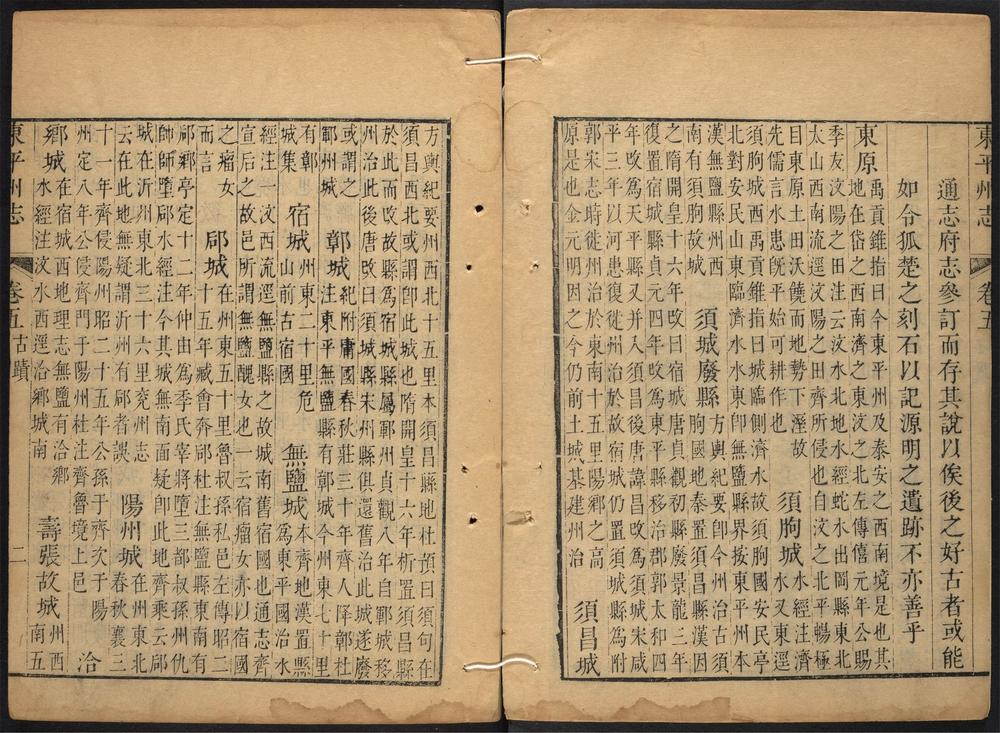 東平州志 卷五
通志府志參訂而存其說以俟後之好古者或能
如令狐楚之刻石以記源明之遺跡不亦善乎
東原
禹貢錐指曰今東平州及泰安之西南境是也其
地在岱之西南濟之東汶之北左傳僖元年公賜
季友汶陽之田注云汶水北地水經蛇水出岡縣東北
太山西南流逕汶陽之田齊所侵也自汶之北平暢極
目東原土田沃饒而地勢下溼故
先儒言水患旣平始可耕作也
須朐城
水經注濟
水又東逕
須朐城西禹貢錐指曰城臨側濟水故須朐國安民亭
北對安民山東臨濟水水東卽無鹽縣界按東平州本
漢無鹽縣地
南有須朐故城
須城廢縣
方輿紀要卽今州治古須
朐國地秦置須昌縣漢因
之隋開皇十六年改曰宿城唐貞觀初縣廢景龍三年
復置宿城縣貞元四年改爲東平縣移治郡郭太和四
年改爲天平縣又并入須昌後唐諱昌改爲須城宋咸
平三年以河患復徙州治於故宿城仍置須城縣爲附
郭宋志時徙州治於東南十五里陽鄉之高
原是也金元明因之今仍前土城基建州治
須昌城
方輿紀要州西北十五里本須昌縣地杜預曰須句在
須昌西北或謂卽此城也隋開皇十六年析置須昌縣
於此而改故縣爲宿城縣屬鄆州貞觀八年自鄆城移
州治此後唐改曰須城縣宋州縣俱還舊治此城遂廢
或謂之
鄆州城
鄣城
紀附庸國春秋莊三十年齊人降鄣杜
注東平無鹽縣有鄣城今州東七十里
有鄣
城集
宿城
州東二十里危
山前古宿國
無鹽城
本齊地漢置縣
爲東平國治水
經注一汶西流逕無鹽縣之故城南舊宿國也通志齊
宣后之故邑所謂無鹽醜女也一云宿瘤女亦以宿國
之瘤女
而言
郈城
在州東五十里魯叔孫私邑左傳昭二
十五年臧會奔郈杜注無鹽縣東南有
郈鄉亭定十二年仲由爲季氏宰將墮三都叔孫州仇
帥師墮郈水經注今其城無南面疑卽此地齊乘云郈
城在沂州東北三十六里兖州志
云在此地無疑謂沂州有郈者誤
陽州城
在州東北
春秋襄三
十一年齊侵陽州昭二十五年公孫于齊次于陽
州定八年公侵齊門于陽州杜注齊魯境上邑
洽
鄉城
在宿城西地理志無鹽有洽鄉
水經注汶水西逕洽鄉城南
壽張故城
州西
南五
東平州志 卷五古蹟 二